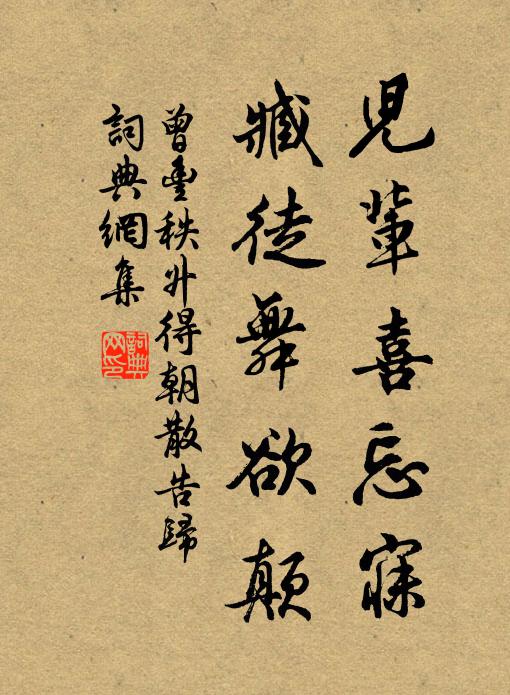 兒輩喜忘寐
臧徒舞欲顛
曾豐秩升得朝散告歸
詞典網集
詞典網印